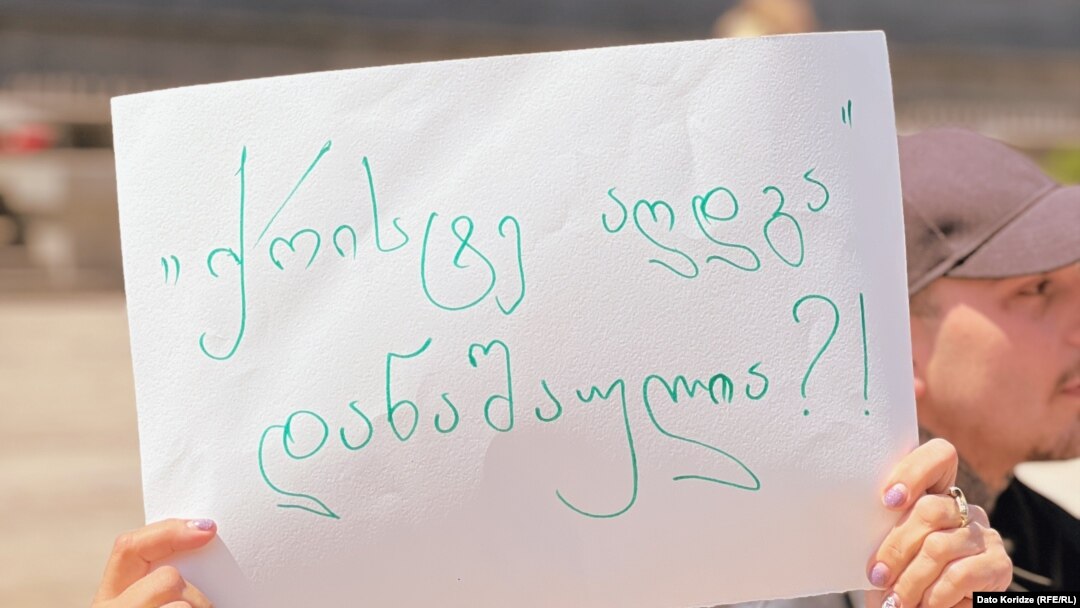 "ქრისტე აღდგა"
დანაშაულია?!
Dato Koridze (RFE/RL)